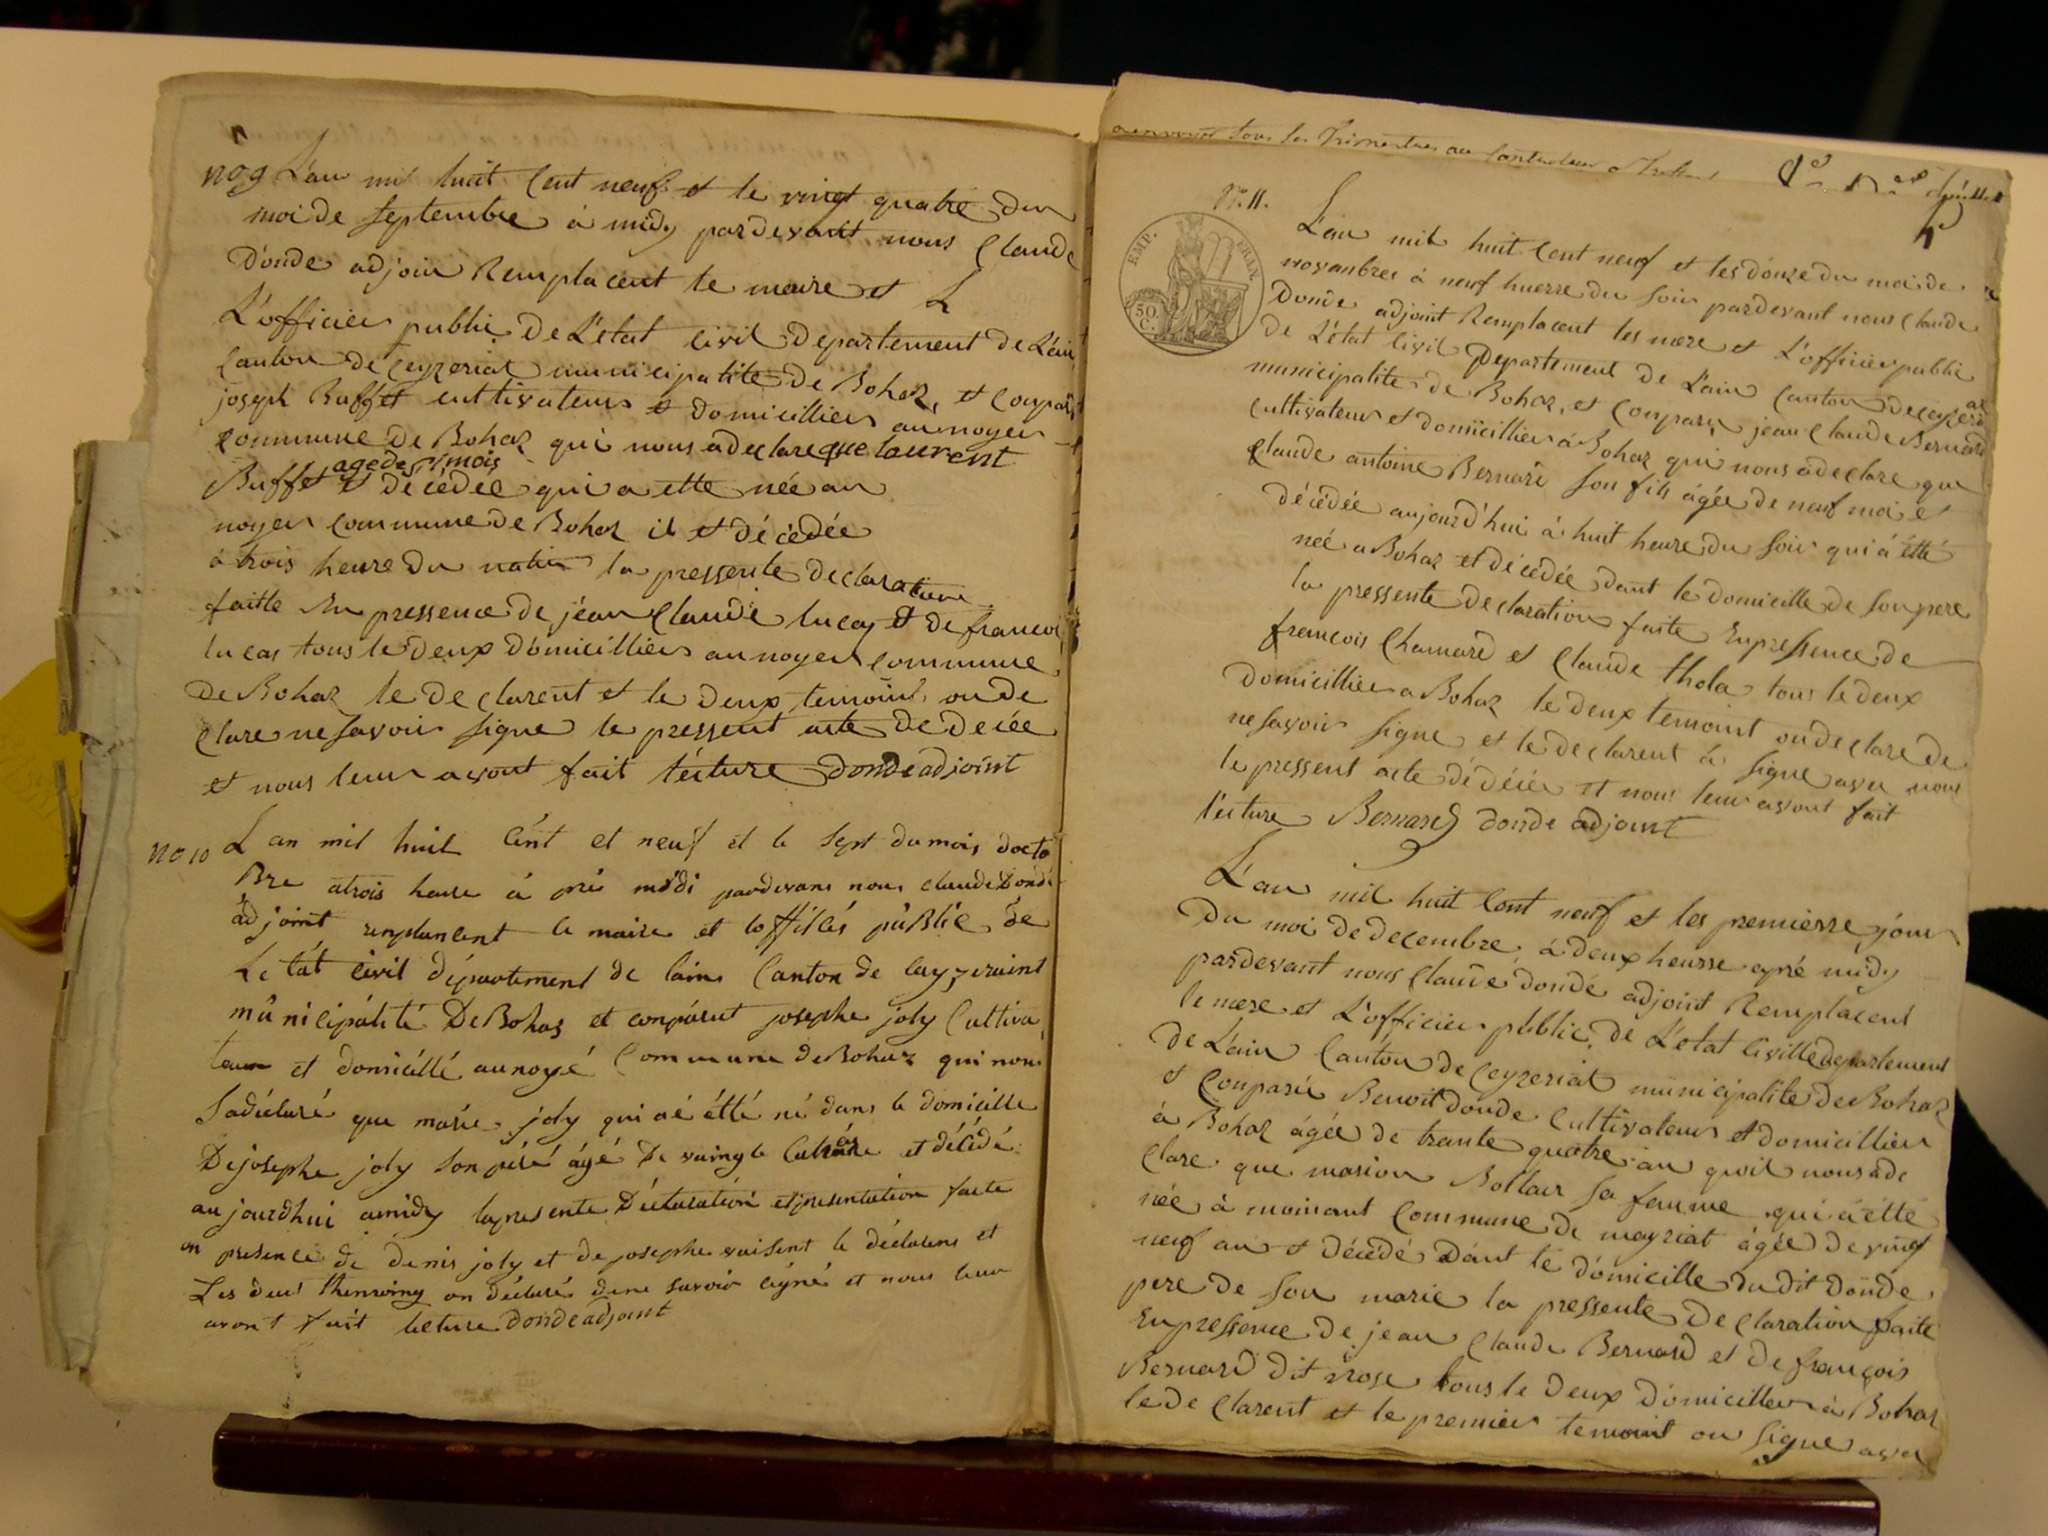 no 9 L'an mil huit Cent neuf et le vingt quatre du
moi de septembre à midy pardevant nous Claude
Donde adjoin Remplacent le meire et L
L'officier public De L'état Civil Departement De L'ain
Canton De Ceyzeriat municipalité De Bohaz, et Conpari
joseph Buffet cultivateur et Domicillier au noyer
Commune De Bohaz qui nous a declare que laurent
Buffet et décédée qui a ette née au
age de mois
noyer Commune De Bohaz il et décédée
à trois heure Du matin la pressente Declaration
faitte En pressence De jéan Claude lucas et De francoi
lucas tous le Deux Domicillier au noyer Commune
De Bohaz le De clarent et le Deux temoint on De
Clare ne savoir signe le pressent acte De Decée
et nous leur avont fait lécture Donde adjoint
no 10 L an mil huit Cént et neuf et le sept du mois docto
Bre atrois heure à pré midi pardevans nous claude Donde
adjoint remplancent le maire et loffisiés pùBlic de
Le tàt civil département de lains Canton de cayzeraint
mûnicipálité De Bohas et conpárut josephe joly Cultiva
teur et domicillé au noyé Commune de Bohaz qui nous
adécluré que marie joly qui aé étté né dans le domicille
De josephe joly son péré ágé De et décédé
au jourdhui amidy la presente Déclaration et presentation faite
en presence de denis joly et de josephe vuisent le déclarens et
Les deus on décluré de ne savoir signé et nous leur
avont fait lecture Donde adjoint
a envoyer tous les Trimestres au Controleur
No. 11.
EMP. FRAN.
50.
C.
L'an mil huit Cent neuf et les Douze du moi de
novanbre à neuf huerre du soir pardevant nous Claude
Donde adjoint Remplacent les mere et L'officier public
De L'état Civil Departement De L'ain Canton de ceyzeriat
municipalite de Bohaz, et Conparu jean Claude Bernard
Cultivateur et domiicillier à Bohaz qui nous a declare que
Claude antoine Bernard son fils ágée de neuf moi et
décédée aujourd'hui à huit heure du soir qui á étté
neé a Bohaz et décédée dant le domicille De son pere
la pressente Declaration faite En pressence De
francois Chanard et Claude thola tous le deux
Domicillier a Bohaz le deux temoint on declare De
ne savoir signe et le declarent à signe avec nous
le pressent acte dé Décée et nous leur avont fait
lécture Bernard donde adjoint
L'an mil huit Cent neuf et les premierre jour
Du moi De decembre, à deux heurre apré midy
pardevant nous Claude dondé adjoint Remplacent
le mere et L'officier public De L'état Civille departement
de L'ain Canton de Ceyzeriat municipalite De Bohaz
et Conparu Benoit donde Cultivateur et domicillier
à Bohaz ágée de trante quatre an qu'il nous a de
Clare que marion Bollair sa femme qui á étté
née à moinant Commune De meyriat ágée De vingt
neuf an et décédé Dant le domicille du dit Donde
pere de son marie la pressente Declaration faite
En pressence De jean Claude Bernard et De françois
Bernard dit rose tous le Deux domicillier à Bohaz
le De clarent et le premier temoint on signe avec